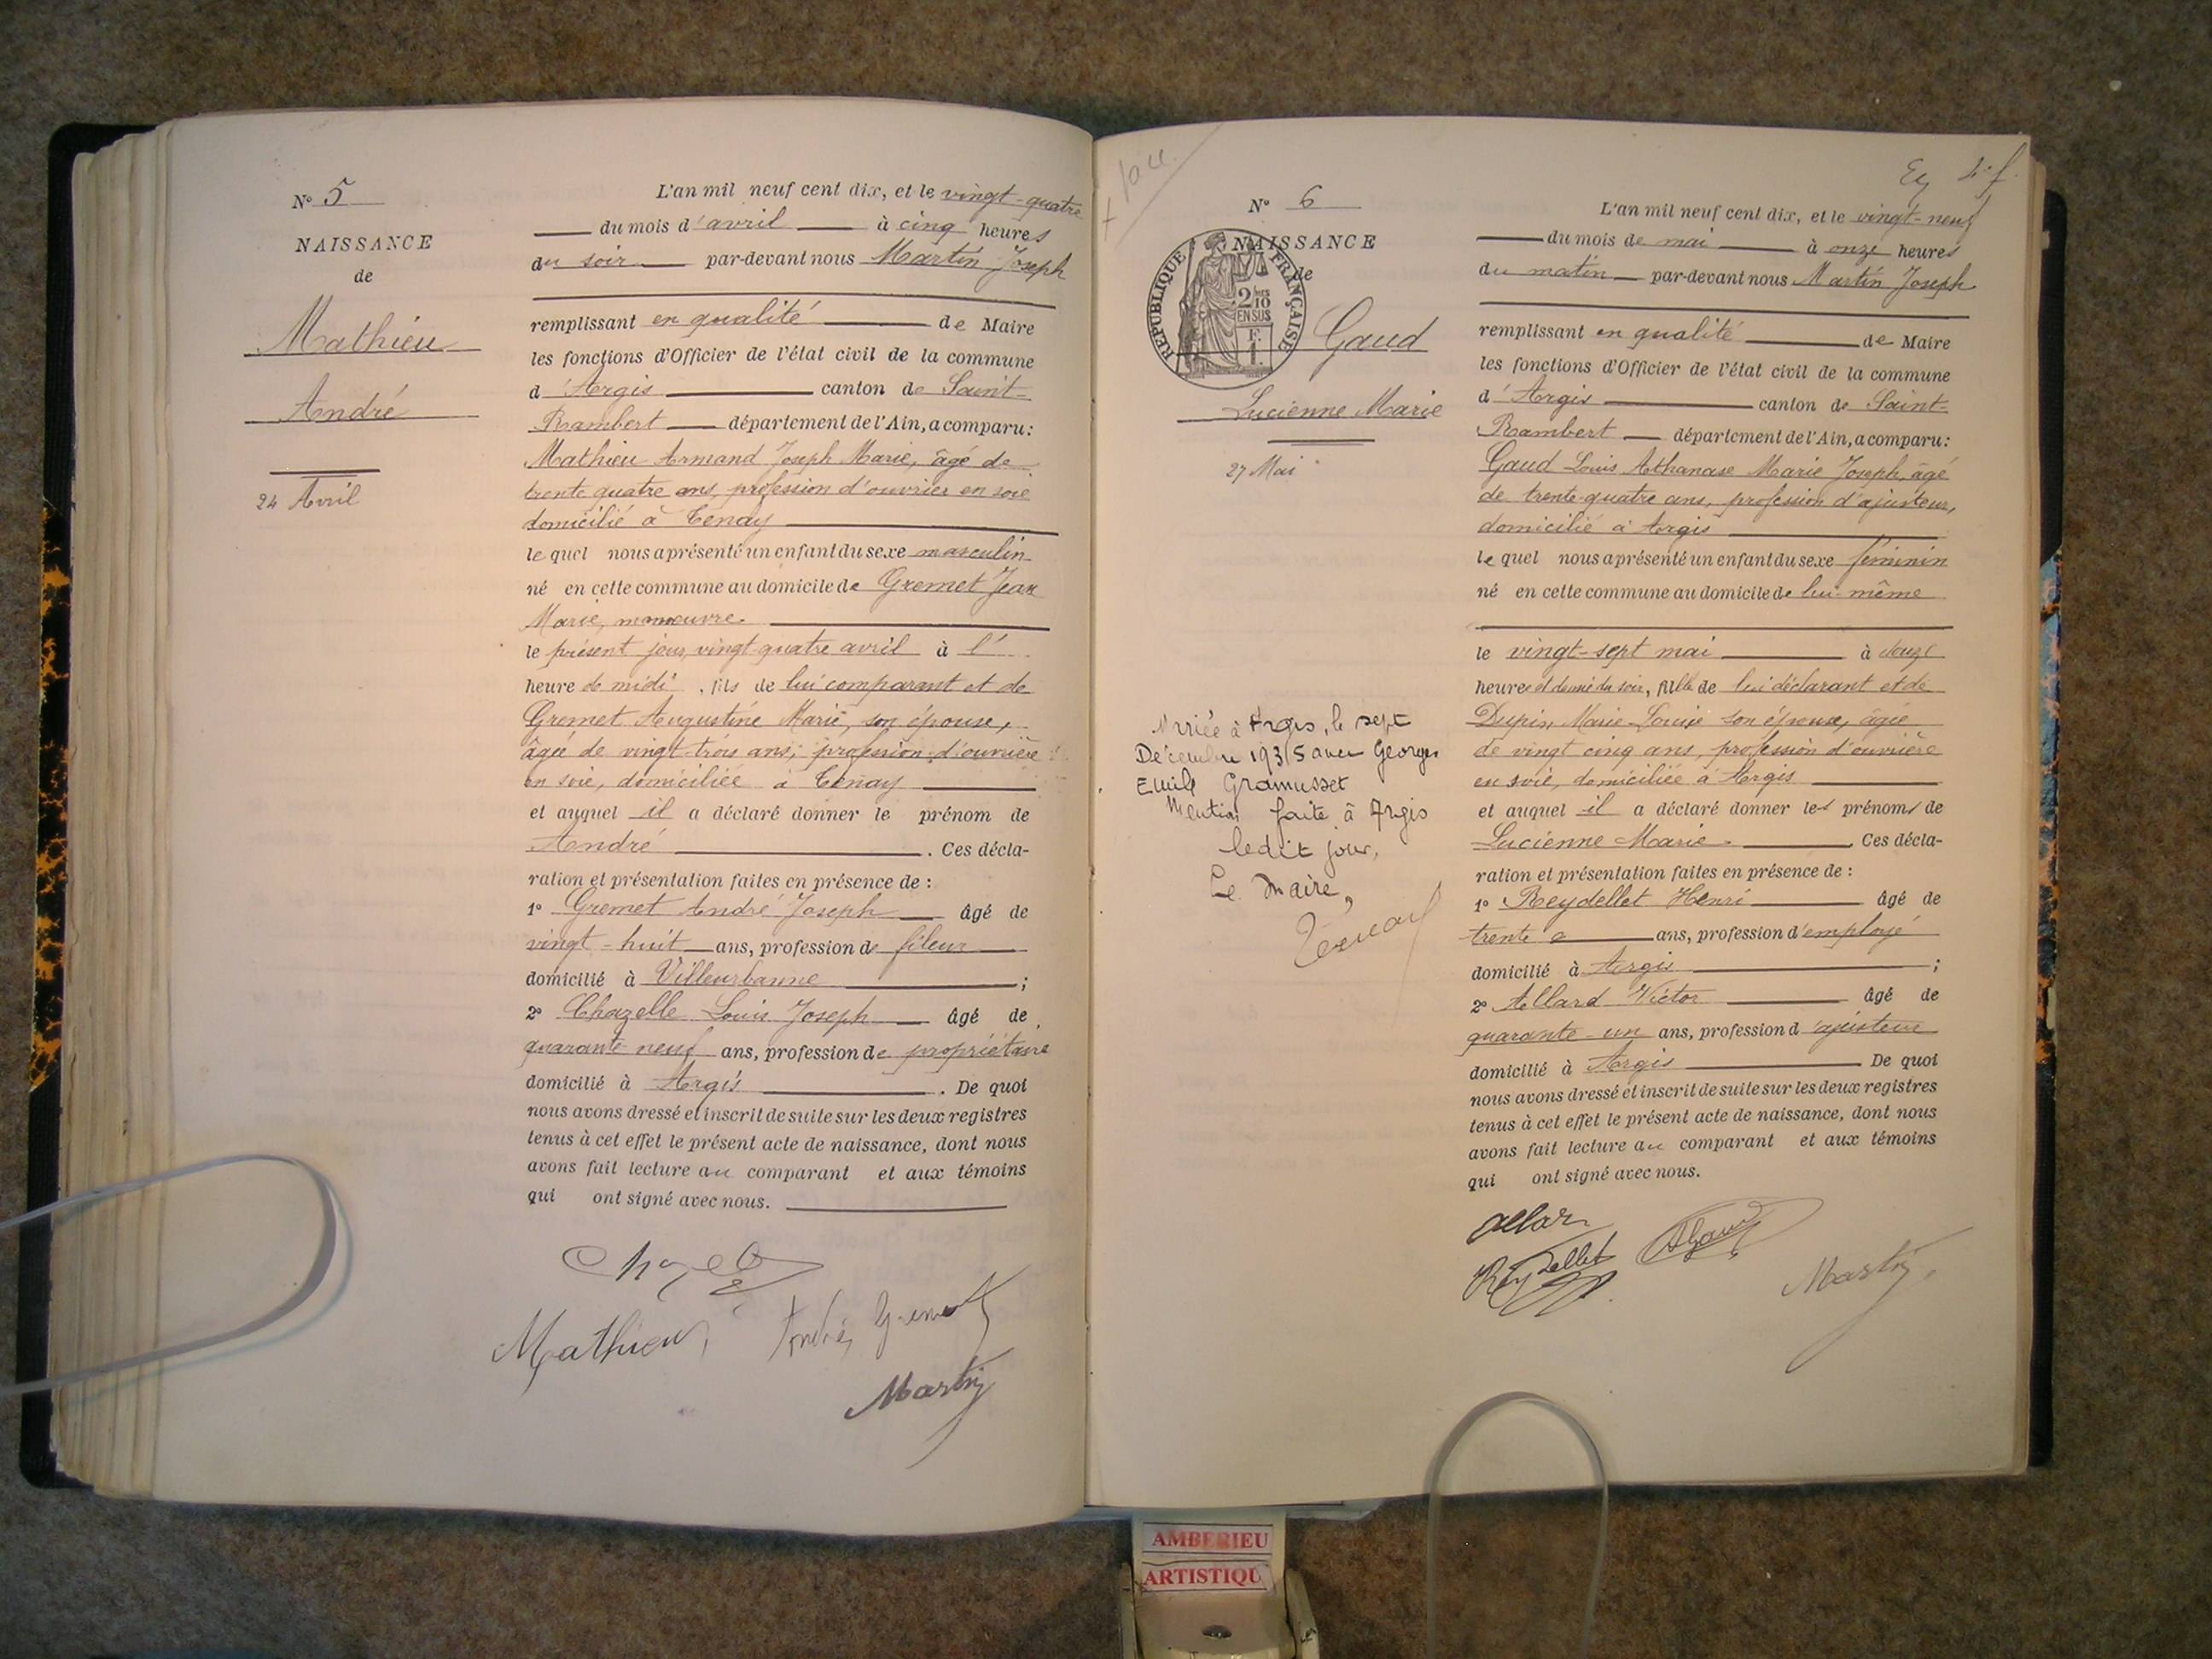 N° 5
NAISSANCE
de
Mathieu
André
24 Avril
L'an mil neuf cent dix, et le vingt-quatre
du mois d'avril à cinq heures
du soir par-devant nous Martin Joseph
remplissant en qualité de Maire
les fonctions d'Officier de l'état civil de la commune
d'Argis canton de Saint-
Rambert département de l'Ain, a comparu:
Mathieu Armand Joseph Marie, âgé de
trente quatre ans, profession d'ouvrier en soie
domicilié à Tenay
le quel nous a présenté un enfant du sexe masculin
né en cette commune au domicile de Gremet Jean
Marie, manœuvre.
le présent jour, vingt-quatre avril à l'
heure de midi, fils de lui comparant et de
Gremet Augustine Marie, son épouse,
âgée de vingt-trois ans; profession d'ouvrière
en soie, domiciliée à Tenay
et auquel il a déclaré donner le prénom de
André. Ces décla-
ration et présentation faites en présence de :
1° Gremet André Joseph âgé de
vingt-huit ans, profession de fileur
domicilié à Villeurbanne ;
2° Chazelle Louis Joseph âgé de
quarante neuf ans, profession de propriétaire
domicilié à Argis. De quoi
nous avons dressé et inscrit de suite sur les deux registres
tenus à cet effet le présent acte de naissance, dont nous
avons fait lecture au comparant et aux témoins
qui ont signé avec nous.
Mathieu André Gremet
Martin
N° 6
NAISSANCE
de
RÉPUBLIQUE FRANÇAISE
2/10
EN SUS
Gaud
Lucienne Marie
27 Mai
Mariée à Argis, le sept
Décembre 1935 avec Georges
Emile Gramusset
Mention faite à Argis
ledit jour,
Le Maire,
L'an mil neuf cent dix, et le vingt-neuf
du mois de mai à onze heures
du matin par-devant nous Martin Joseph
remplissant en qualité de Maire
les fonctions d'Officier de l'état civil de la commune
d'Argis canton de Saint-
Rambert département de l'Ain, a comparu:
Gaud Louis Athanase Marie Joseph, âgé
de trente-quatre ans, profession d'ajusteur,
domicilié à Argis
le quel nous a présenté un enfant du sexe féminin
né en cette commune au domicile de lui-même
le vingt-sept mai à
heures et demie du soir, fille de lui déclarant et de
Dupin Marie-Louise son épouse, âgée
de vingt cinq ans, profession d'ouvrière
en soie, domiciliée à Argis
et auquel il a déclaré donner les prénoms de
Lucienne Marie. Ces décla-
ration et présentation faites en présence de :
1° Reydellet Henri âgé de
trente ans, profession d'employé
domicilié à Argis ;
2° Allard Victor âgé de
quarante-un ans, profession d'ajusteur
domicilié à Argis De quoi
nous avons dressé et inscrit de suite sur les deux registres
tenus à cet effet le présent acte de naissance, dont nous
avons fait lecture au comparant et aux témoins
qui ont signé avec nous.
Reydellet
Martin
AMBERIEU
ARTISTIQU